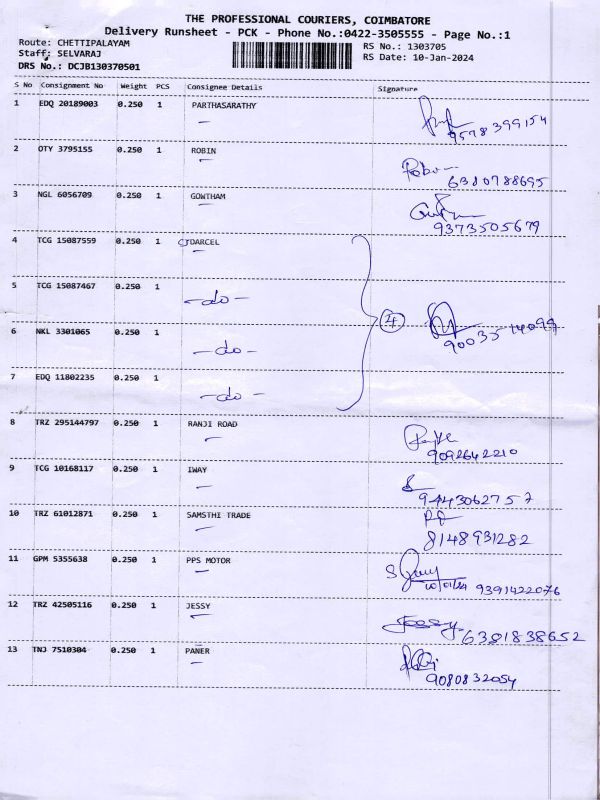 THE PROFESSIONAL COURIERS, COIMBATORE
Delivery Runsheet - PCK - Phone No.:0422-3505555 - Page No.:1
Route: CHETTIPALAYAM RS No.: 1303705
Staff: SELVARAJ RS Date: 10-Jan-2024
DRS No.: DCJB130370501
S No Consignment No Weight PCS Consignee Details Signature
1 EDQ 20189003 0.250 1 PARTHASARATHY
9578399154
2 OTY 3795155 0.250 1 ROBIN
6380788695
3 NGL 6056709 0.250 1 GOWTHAM
9373505679
4 TCG 15087559 0.250 1 DARCEL
5 TCG 15087467 0.250 1 -do-
6 NKL 3301065 0.250 1 -do- 4 9003514099
7 EDQ 11802235 0.250 1 -do-
8 TRZ 295144797 0.250 1 RANJI ROAD
9092642210
9 TCG 10168117 0.250 1 IWAY
9443062757
10 TRZ 61012871 0.250 1 SAMSTHI TRADE
8148931282
11 GPM 5355638 0.250 1 PPS MOTOR
10/01/24 9391422076
12 TRZ 42505116 0.250 1 JESSY Jessy
6381838652
13 TNJ 7510304 0.250 1 PANER
9080832054